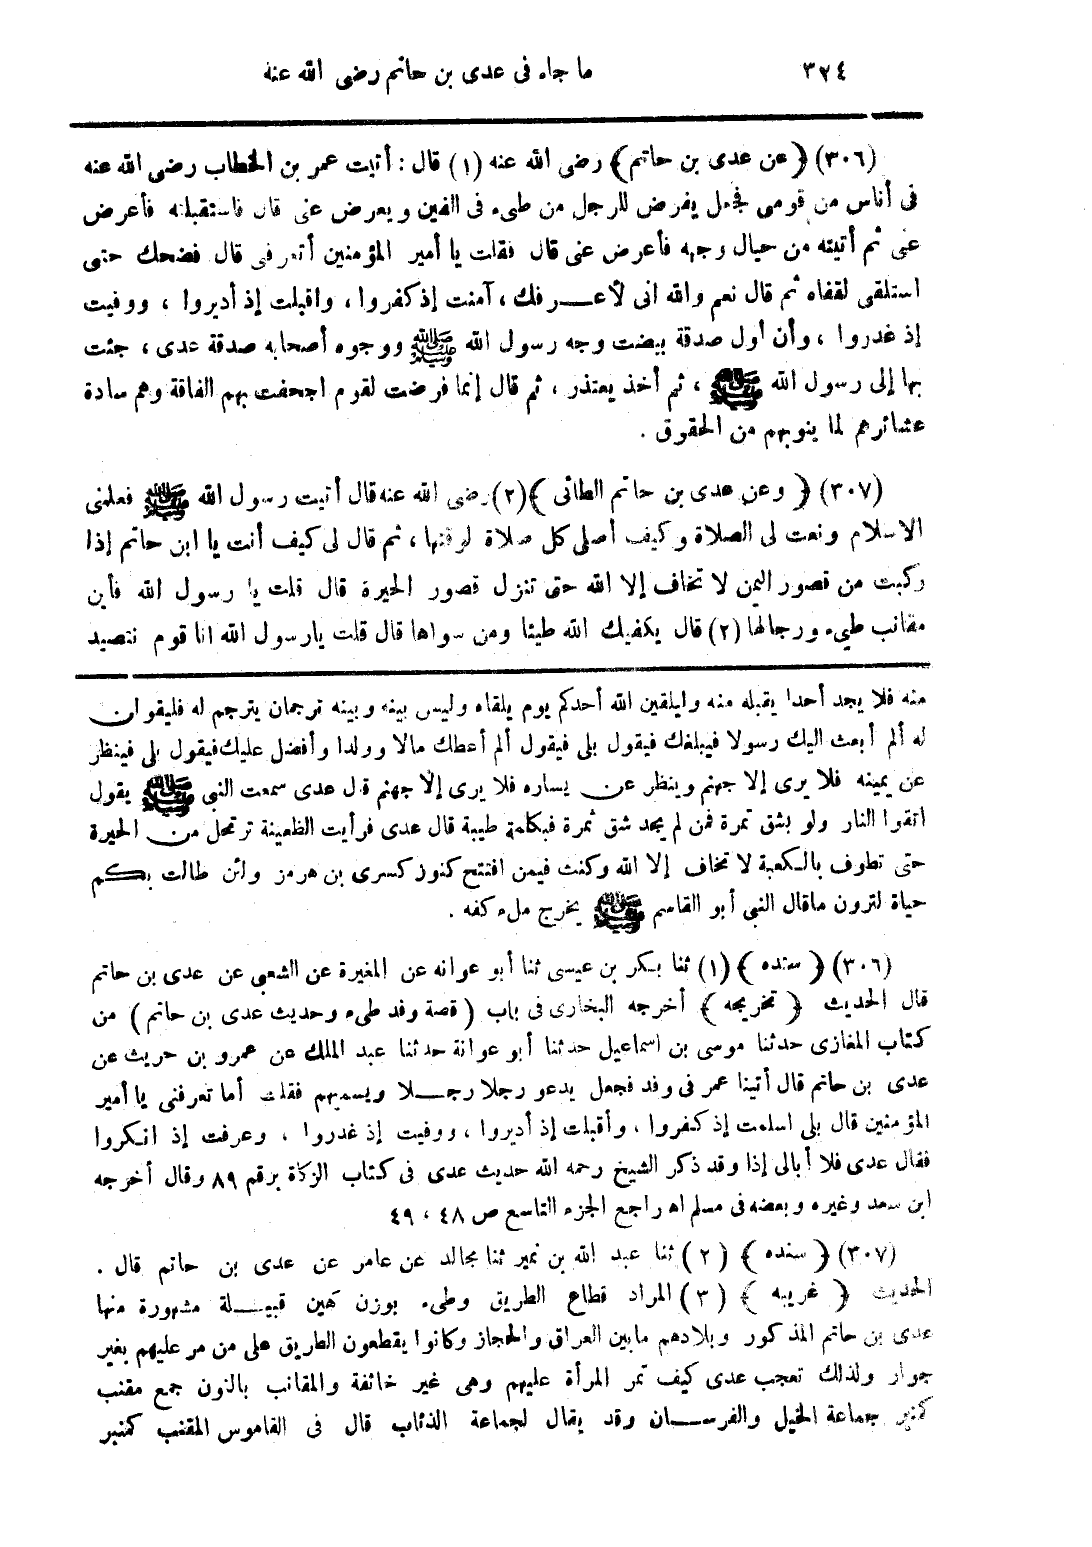 ٣٧٤ ما جاء فى عدى بن حاتم رضى الله عنه
(٣٠٦) ﴿ عن عدى بن حاتم ﴾ رضى الله عنه (١) قال : أتيت عمر بن الخطاب رضى الله عنه
فى أناس من قومى فجعل يفرض للرجل من طىء فى ألفين ويعرض عنى قال فاستقبلته فأعرض
عنى ثم أتيته من حيال وجهه فأعرض عنى قال فقلت يا أمير المؤمنين أتعرفنى قال فضحك حتى
استلقى لقفاه ثم قال نعم والله انى لأعرفك ، آمنت إذ كفروا ، واقبلت إذ أدبروا ، ووفيت
إذ غدروا ، وأن أول صدقة بيضت وجه رسول الله ﷺ ووجوه أصحابه صدقة عدى ، جئت
بها إلى رسول الله ﷺ ، ثم أخذ يعتذر ، ثم قال إنما فرضت لقوم اجحفت بهم الفاقة وهم سادة
عشائرهم لما ينوبهم من الحقوق .
(٣٠٧) ﴿ وعن عدى بن حاتم الطائى ﴾ (٢) رضى الله عنه قال أتيت رسول الله ﷺ فعلمنى
الاسلام ونعت لى الصلاة وكيف أصلى كل صلاة لوقتها ، ثم قال لى كيف أنت يا ابن حاتم إذا
ركبت من قصور اليمن لا تخاف إلا الله حتى تنزل قصور الحيرة قال قلت يا رسول الله فأين
مقانب طيىء ورجالها (٢) قال يكفيك الله طيئا ومن سواها قال قلت يارسول الله انا قوم نتصيد
منه فلا يجد أحدا يقبله منه وليلقين الله أحدكم يوم يلقاه وليس بينه وبينه ترجمان يترجم له فليقولن
له ألم أبعث اليك رسولا فيبلغك فيقول بلى فيقول ألم أعطك مالا وولدا وأفضل عليك فيقول بلى فينظر
عن يمينه فلا يرى إلا جهنم وينظر عن يساره فلا يرى إلا جهنم قال عدى سمعت النبى ﷺ يقول
اتقوا النار ولو بشق تمرة فمن لم يجد شق تمرة فبكلمة طيبة قال عدى فرأيت الظعينة ترتحل من الحيرة
حتى تطوف بالكعبة لا تخاف إلا الله وكنت فيمن افتتح كنوز كسرى بن هرمز ولئن طالت بكم
حياة لترون ماقال النبى أبو القاسم ﷺ يخرج ملء كفه .
(٣٠٦) ﴿ سنده ﴾ (١) ثنا بكر بن عيسى ثنا أبو عوانه عن المغيرة عن الشعبى عن عدى بن حاتم
قال الحديث ﴿ تخريجه ﴾ أخرجه البخارى فى باب ( قصة وفد طىء وحديث عدى بن حاتم ) من
كتاب المغازى حدثنا موسى بن اسماعيل حدثنا أبو عوانة حدثنا عبد الملك عن عمرو بن حريث عن
عدى بن حاتم قال أتينا عمر فى وفد فجعل يدعو رجلا رجلا ويسميهم فقلت أما تعرفنى يا أمير
المؤمنين قال بلى اسلمت إذ كفروا ، وأقبلت إذ أدبروا ، ووفيت إذ غدروا ، وعرفت إذ انكروا
فقال عدى فلا أبالى إذا وقد ذكر الشيخ رحمه الله حديث عدى فى كتاب الزكاة برقم ٨٩ وقال أخرجه
ابن سعد وغيره وبعضه فى مسلم اه راجع الجزء التاسع ص ٤٨ ، ٤٩
(٣٠٧) ﴿ سنده ﴾ (٢) ثنا عبد الله بن نمير ثنا مجالد عن عامر عن عدى بن حاتم قال .
الحديث ﴿ غريبه ﴾ (٣) المراد قطاع الطريق وطىء بوزن هين قبيلة مشهورة منها
عدى بن حاتم المذكور وبلادهم مابين العراق والحجاز وكانوا يقطعون الطريق على من مر عليهم بغير
جوار ولذلك تعجب عدى كيف تمر المرأة عليهم وهى غير خائفة والمقانب بالنون جمع مقنب
كمنبر جماعة الخيل والفرسان وقد يقال لجماعة الذئاب قال فى القاموس المقنب كمنبر